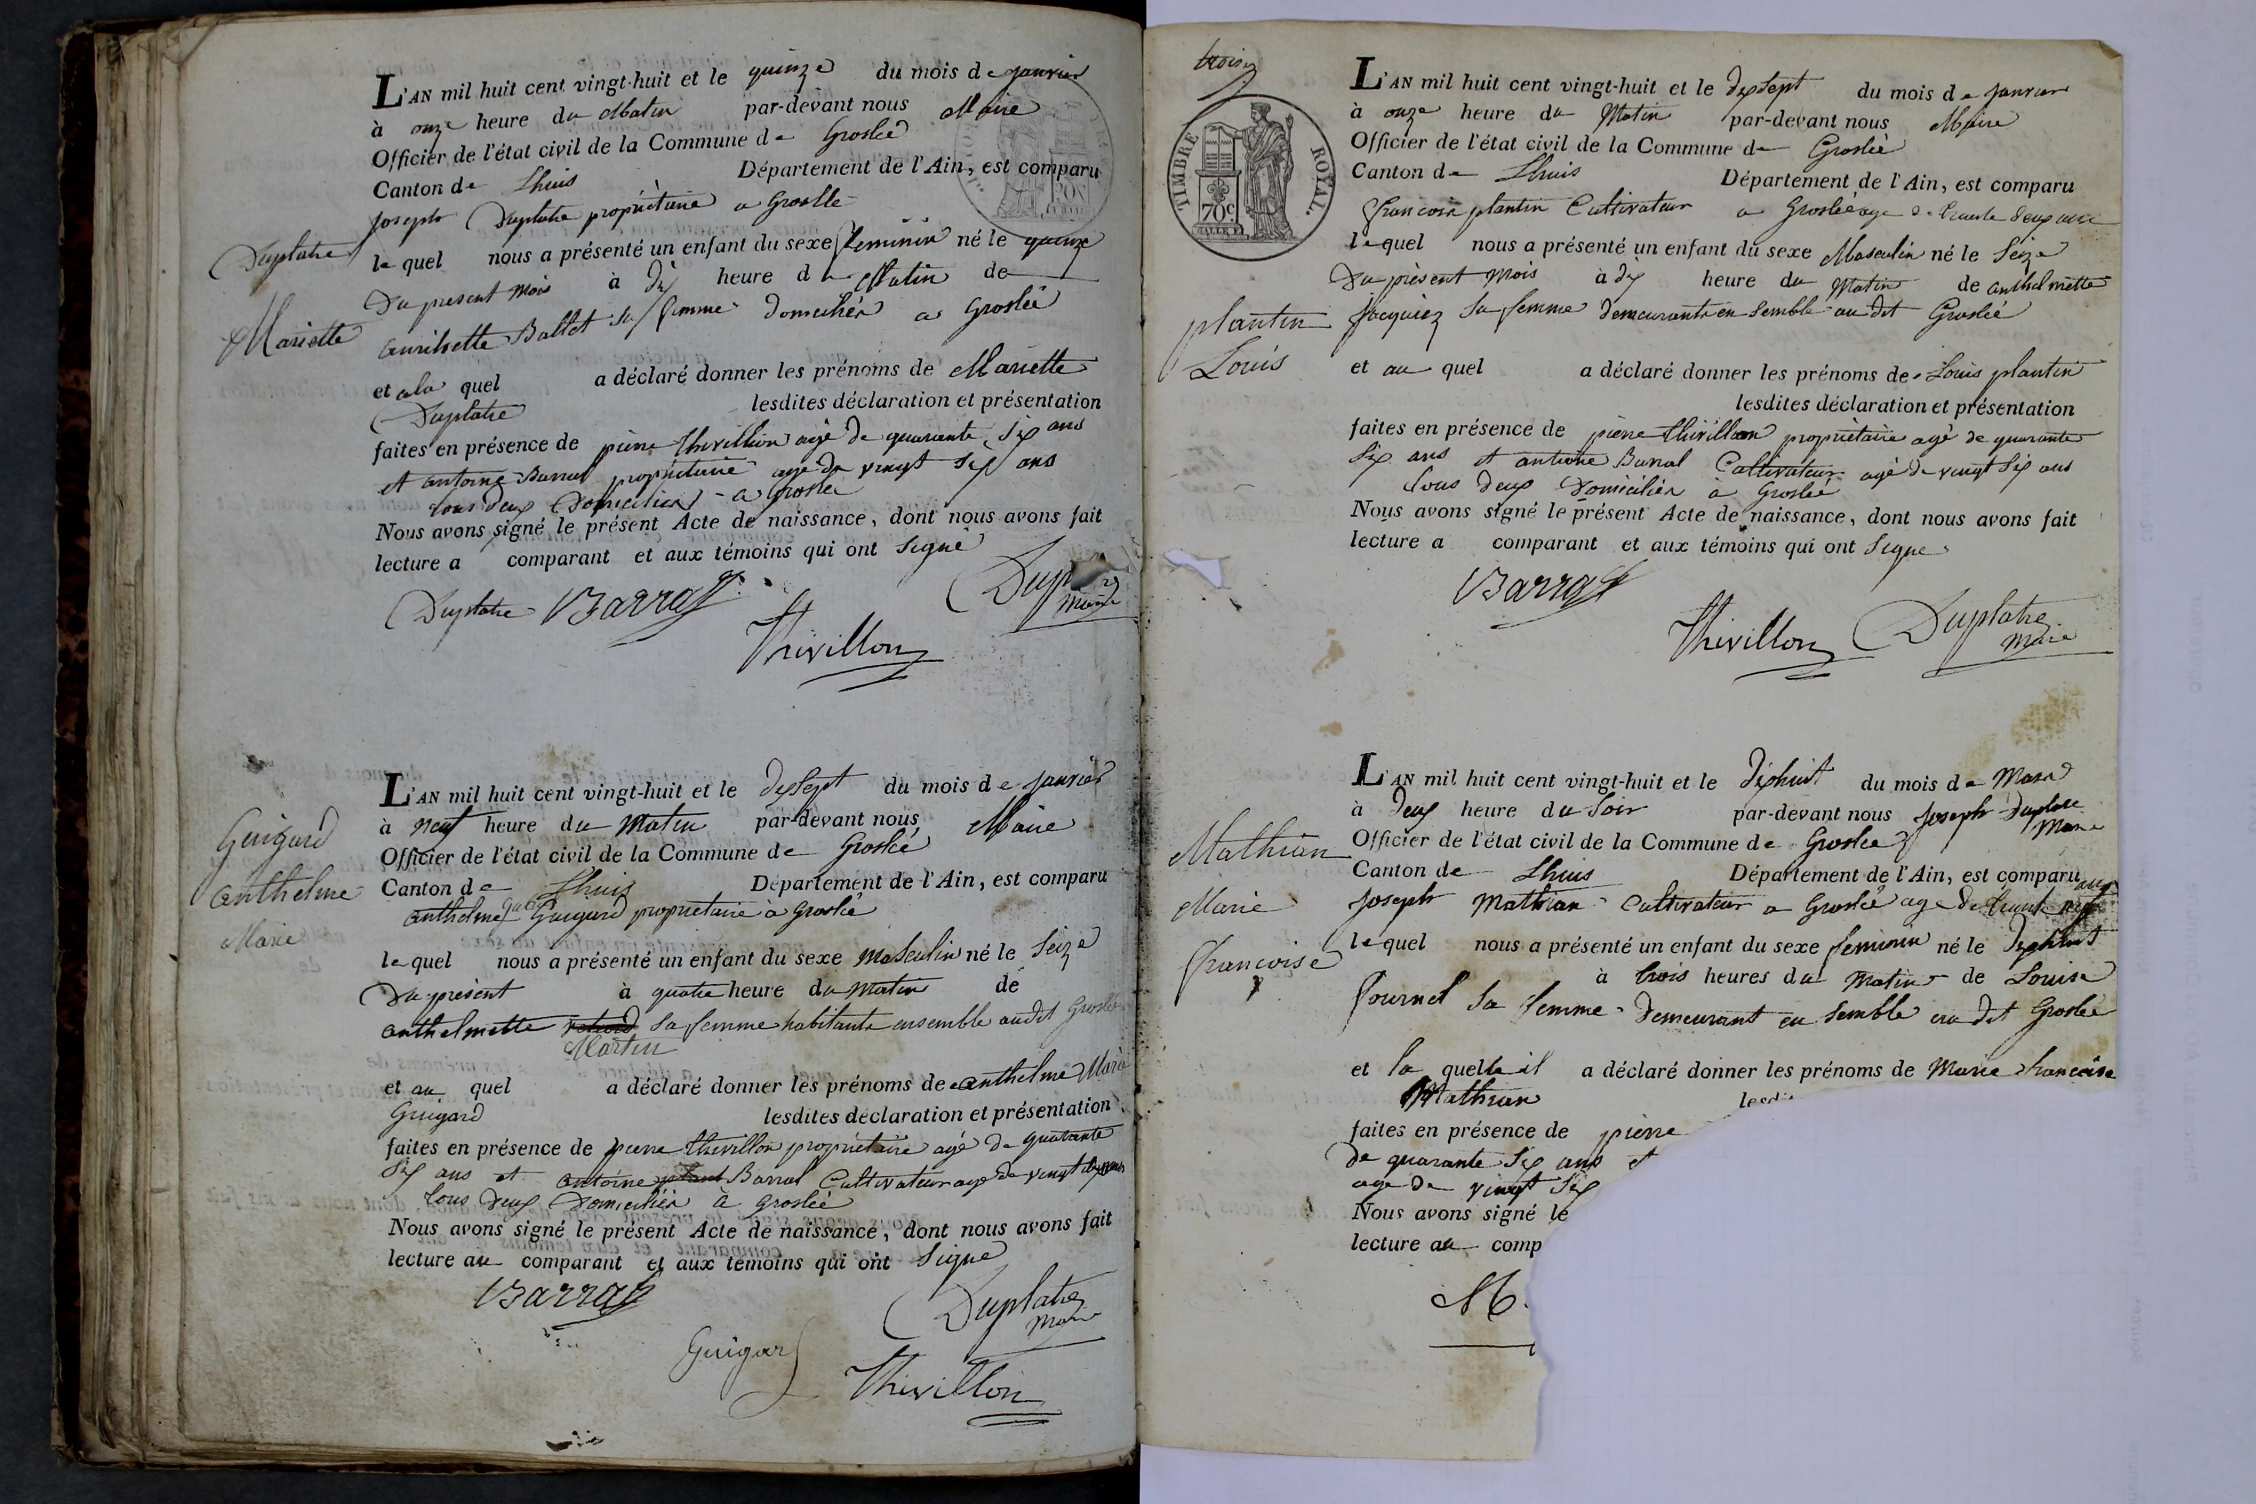 L'AN mil huit cent vingt-huit et le quinze du mois de janvier
à onze heure du Matin par-devant nous Maire
Officier de l'état civil de la Commune de Groslée
Canton de Lhuis Département de l'Ain, est comparu
joseph Duplatre propriètaire a Groslée
le quel nous a présenté un enfant du sexe feminin né le quinze
Duplatre
Du present mois à dix heure du Matin de
Mariette
Ballet sa femme domiciliés a Groslée
et a la quel a déclaré donner les prénoms de Mariette
Duplatre lesdites déclaration et présentation
faites en présence de pierre thivillion agé de quarante six ans
et antoine Barral propriètaire agé de vingt six ans
tous deux Domiciliés a Groslée
Nous avons signé le présent Acte de naissance, dont nous avons fait
lecture a comparant et aux témoins qui ont signé
Duplatre Barral
Maire
Thivillon
L'AN mil huit cent vingt-huit et le dixsept du mois de janvier
à neuf heure du Matin par-devant nous Maire
Officier de l'état civil de la Commune de Groslée
Guigard
anthelme
Marie
Canton de Lhuis Département de l'Ain, est comparu
anthelme Guigard propriètaire à Groslée
le quel nous a présenté un enfant du sexe Masculin né le Seize
Du present à quatre heure du Matin de
anthelmette sa femme habitants ensemble audit Groslée
Martin
et au quel a déclaré donner les prénoms de anthelme Marie
Guigard lesdites déclaration et présentation
faites en présence de pierre thivillon propriètaire agé de quarante
Six ans et antoine Barral Cultivateur agé de vingt six ans
tous deux Domiciliés à Groslée
Nous avons signé le présent Acte de naissance, dont nous avons fait
lecture au comparant et aux témoins qui ont Signé
Barral
Duplatre
Maire
Guigard
Thivillon
trois
TIMBRE ROYAL.
70c
L'AN mil huit cent vingt-huit et le dixsept du mois de janvier
à onze heure du Matin par-devant nous Maire
Officier de l'état civil de la Commune de Groslée
Canton de Lhuis Département de l'Ain, est comparu
françois plantin Cultivateur a Groslée agé de trente deux ans
le quel nous a présenté un enfant du sexe Masculin né le Seize
Du présent Mois à dix heure du Matin de anthelmette
plantin
Louis
Jacquiez sa femme demeurants en semble au dit Groslée
et au quel a déclaré donner les prénoms de Louis plantin
lesdites déclaration et présentation
faites en présence de pierre thivillon propriètaire agé de quarante
Six ans et antoine Barral Cultivateur agé de vingt Six ans
tous deux Domiciliés à Groslée
Nous avons signé le présent Acte de naissance, dont nous avons fait
lecture a comparant et aux témoins qui ont Signé
Barral
Thivillon Duplatre
Maire
L'AN mil huit cent vingt-huit et le dixhuit du mois de Mars
à deux heure du Soir par-devant nous joseph Duplatre
Maire
Officier de l'état civil de la Commune de Groslée
Mathian
Marie
françoise
Canton de Lhuis Département de l'Ain, est comparu
joseph Mathian Cultivateur a Groslée agé de trente ans
le quel nous a présenté un enfant du sexe feminin né le dixhuit
à trois heures du Matin de Louise
fournel sa femme Demeurant en semble au dit Groslée
et la quelle il a déclaré donner les prénoms de Marie françoise
Mathian
faites en présence de pierre
de quarante Six ans et
agé de vingt Six
Nous avons signé le
lecture au comp
M